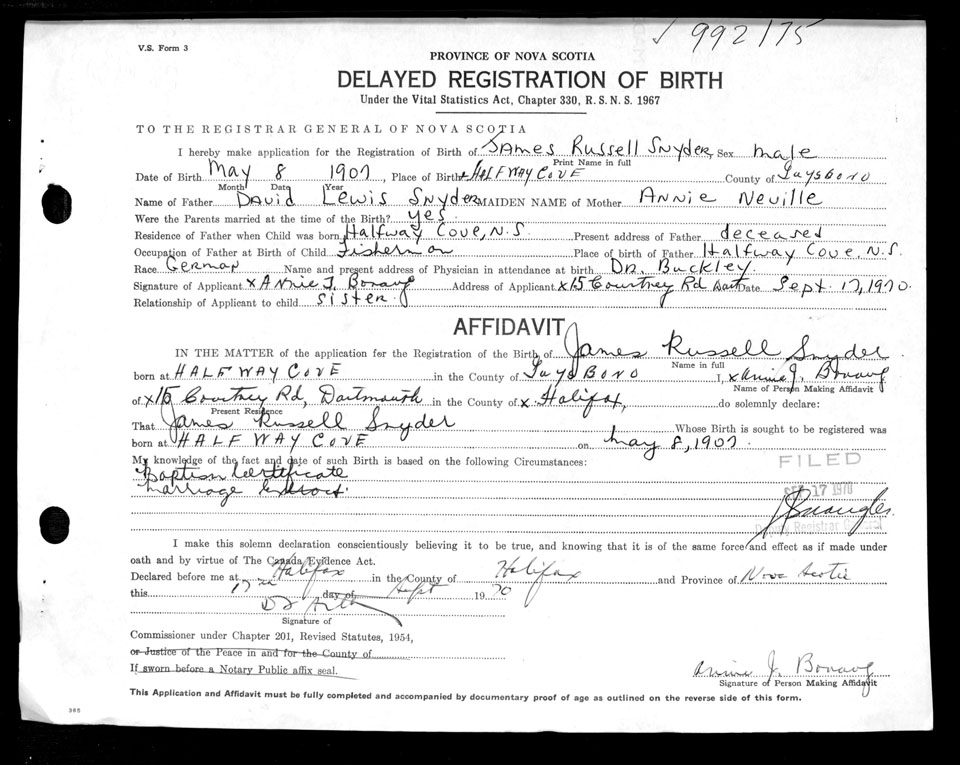 V.S. Form 3
✓ 992175
PROVINCE OF NOVA SCOTIA
DELAYED REGISTRATION OF BIRTH
Under the Vital Statistics Act, Chapter 330, R.S.N.S. 1967
TO THE REGISTRAR GENERAL OF NOVA SCOTIA
I hereby make application for the Registration of Birth of James Russell Snyder, Sex male
Print Name in full
Date of Birth May 8 1907, Place of Birth HALFWAY COVE County of Guysboro
Month Date Year
Name of Father David Lewis Snyder MAIDEN NAME of Mother Annie Neville
Were the Parents married at the time of the Birth? yes
Residence of Father when Child was born Halfway Cove, N.S. Present address of Father deceased
Occupation of Father at Birth of Child Fisherman Place of birth of Father Halfway Cove, N.S.
Race German Name and present address of Physician in attendance at birth Dr. Buckley
Signature of Applicant x Annie J. Address of Applicant x 15 Courtney Rd Dart Date Sept. 17, 1970.
Relationship of Applicant to child sister
AFFIDAVIT
IN THE MATTER of the application for the Registration of the Birth of James Russell Snyder
Name in full
born at HALFWAY COVE in the County of GuysBoro I, x Annie J.
Name of Person Making Affidavit
of x 15 Courtney Rd, Dartmouth in the County of x Halifax, do solemnly declare:
Present Residence
That James Russell Snyder Whose Birth is sought to be registered was
born at HALFWAY COVE on May 8, 1907.
My knowledge of the fact and date of such Birth is based on the following Circumstances:
FILED
Baptism Certificate
marriage
17 1970
Deputy Registrar General
I make this solemn declaration conscientiously believing it to be true, and knowing that it is of the same force and effect as if made under
oath and by virtue of The Canada Evidence Act.
Declared before me at Halifax in the County of Halifax and Province of Nova Scotia
this 17th day of Sept 1970
Signature of
Commissioner under Chapter 201, Revised Statutes, 1954,
or Justice of the Peace in and for the County of
If sworn before a Notary Public affix seal.
Annie J.
Signature of Person Making Affidavit
This Application and Affidavit must be fully completed and accompanied by documentary proof of age as outlined on the reverse side of this form.
385